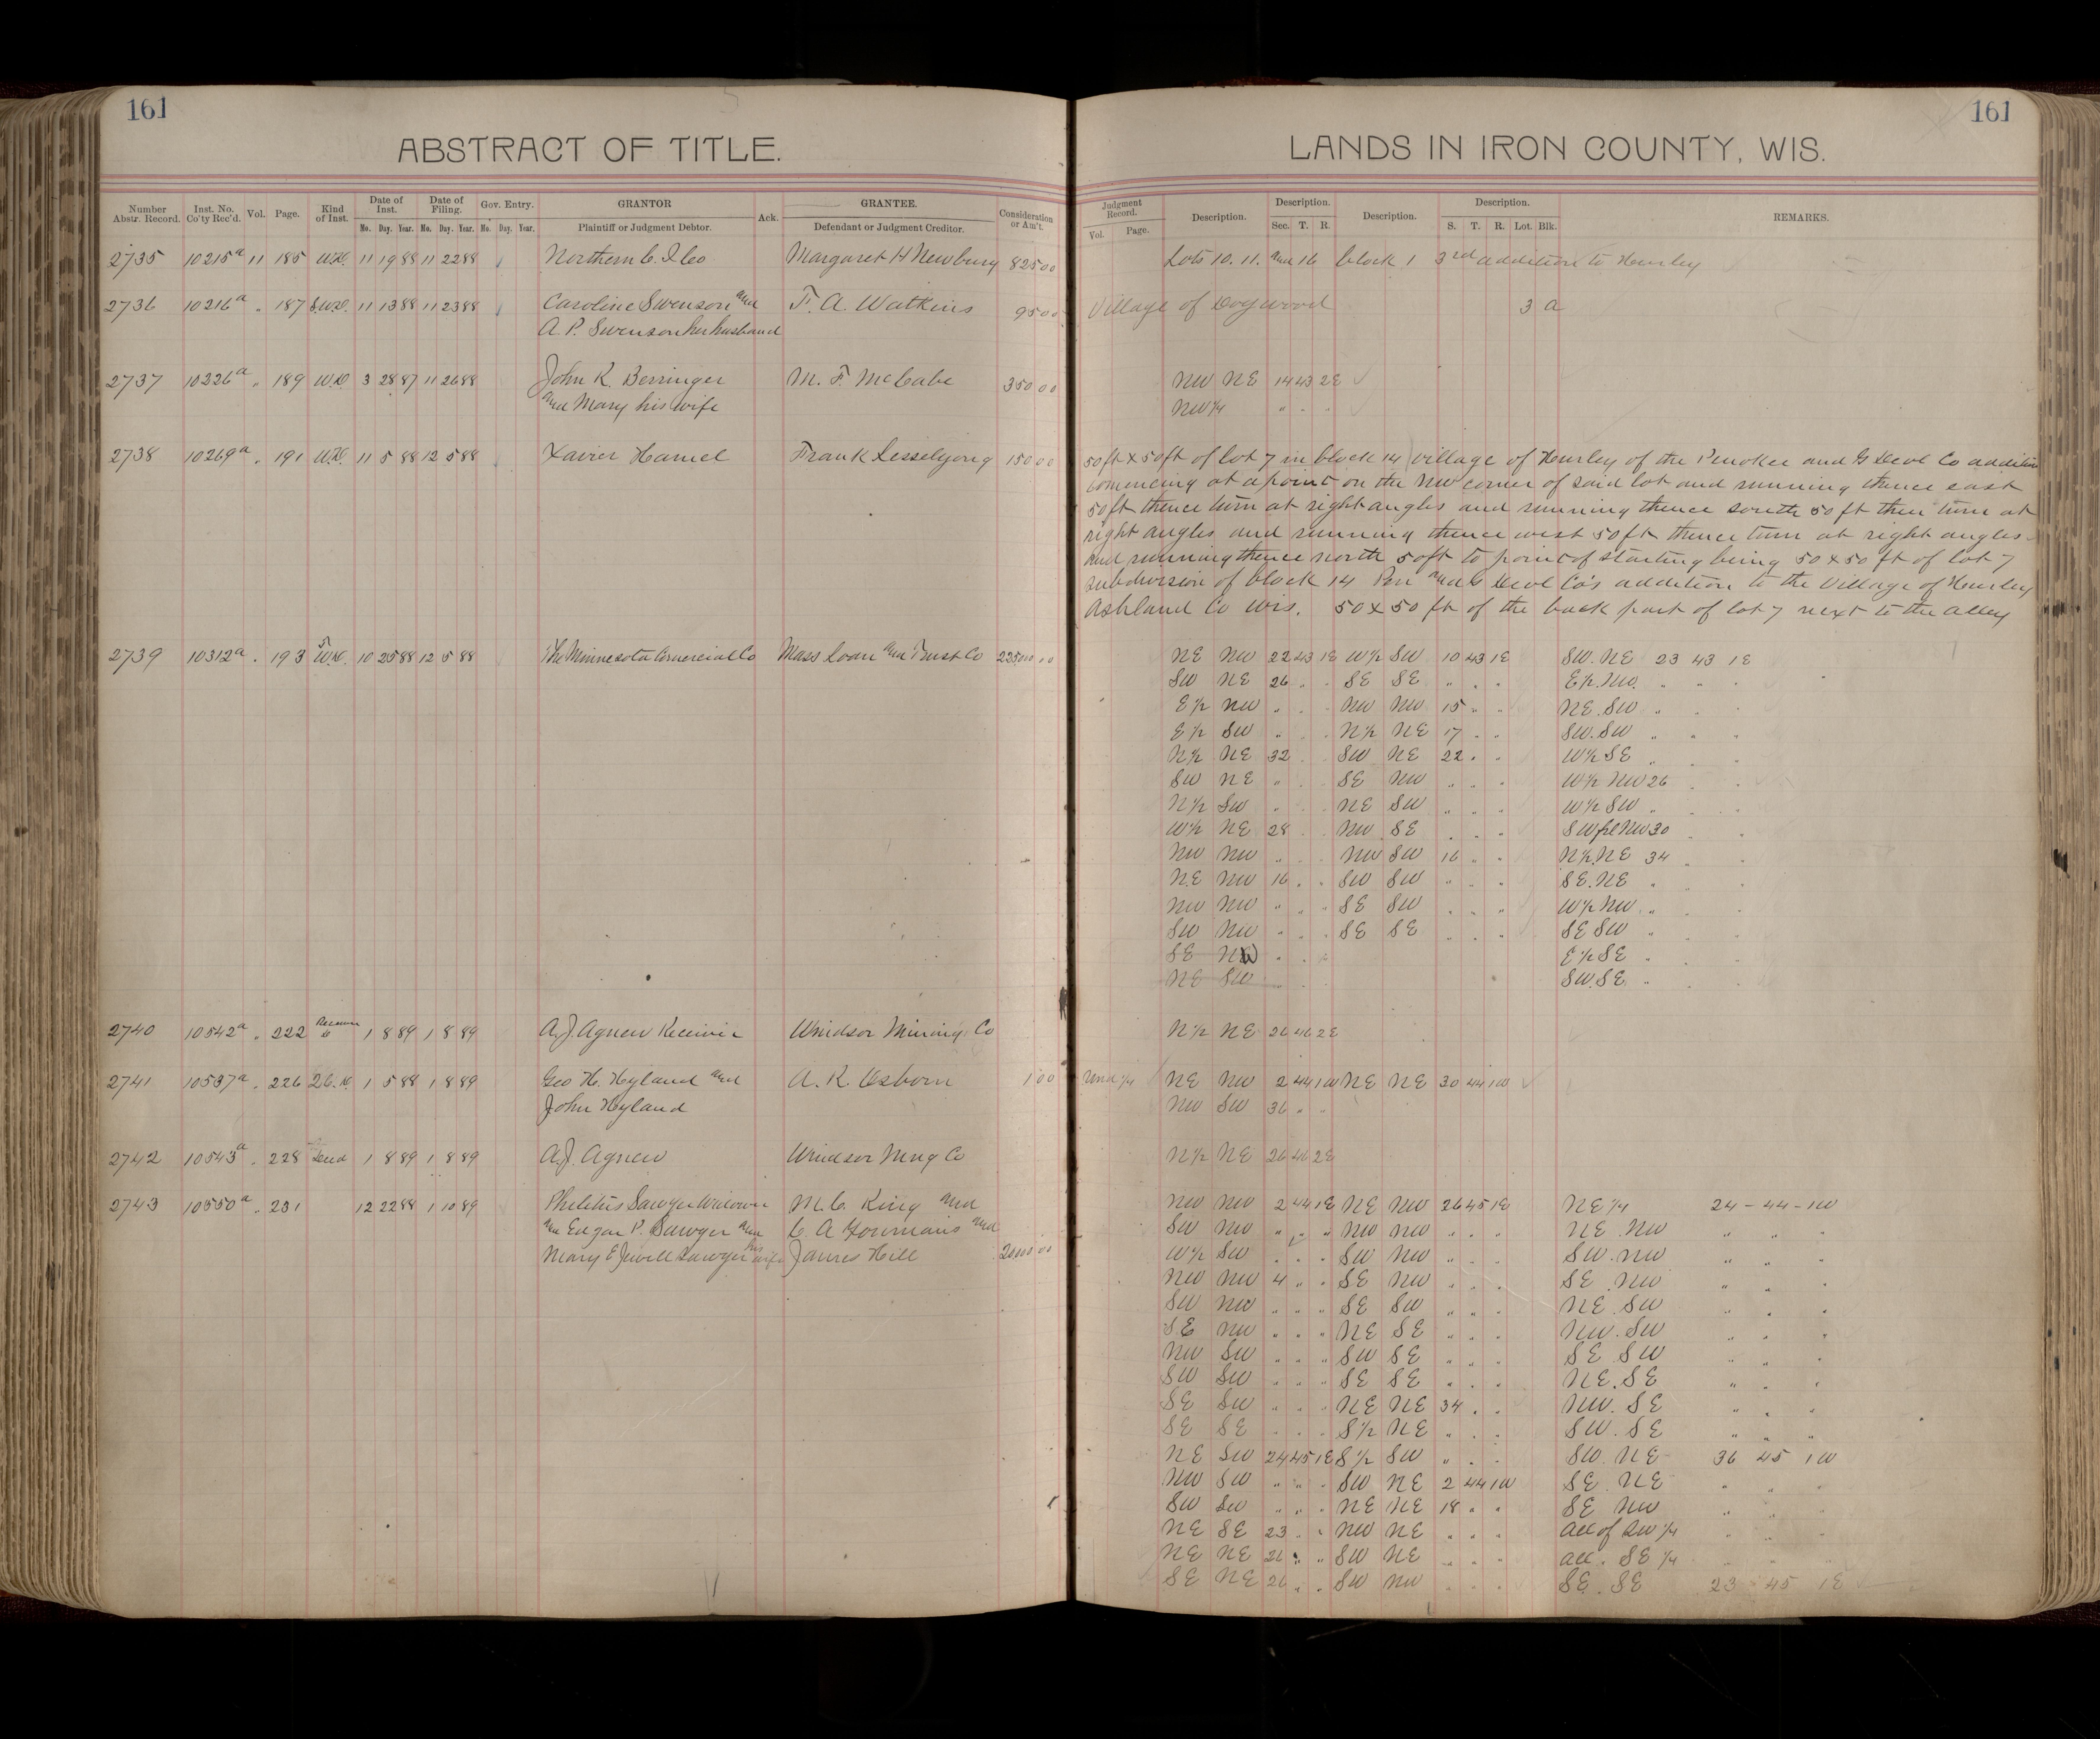 161
ABSTRACT OF TITLE.
Number Abstr. Record. Inst. No. Co'ty Rec'd. Vol. Page. Kind of Inst. Date of Inst. Mo. Day. Year. Date of Filing. Mo. Day. Year. Gov. Entry. Mo. Day. Year. GRANTOR Plaintiff or Judgment Debtor. Ack. GRANTEE. Defendant or Judgment Creditor. Consideration or Am't.
2735 10215a 11 185 W.D. 11 19 88 11 22 88 Northern C. I. Co Margaret H Newbury 825 00
2736 10216a " 187 S.W.D. 11 13 88 11 23 88 Caroline Swenson and F. A. Watkins 95 00
A. P. Swenson her husband
2737 10226a " 189 W.D 3 28 87 11 26 88 John K. Berringer M. F. McCabe 350 00
and Mary his wife
2738 10269a " 191 W.D. 11 5 88 12 5 88 Xavier Hamel Frank Lesselyong 150 00
2739 10312a " 193 S W.D. 10 25 88 12 5 88 The Minnesota Comercial Co Mass Loan and Trust Co
2740 10542a " 222 1 8 89 1 8 89 A. J. Agnew Receiver Windsor Mining Co
2741 10537a " 226 2C. D. 1 5 88 1 8 89 Geo H. Hyland and A. K. Osborn 1 00
John Hyland
2742 10543a " 228 Deed 1 8 89 1 8 89 A. J. Agnew Windsor Mng Co
2743 10550a " 231 12 22 88 1 10 89 Philetus Sawyer Widower M. C. King and
and Edgar P. Sawyer and C. A. Youmans and
Mary E Jewell Sawyer his wife James Hill
161
LANDS IN IRON COUNTY, WIS.
Judgment Record. Vol. Page. Description. Description. Sec. T. R. Description. Description. S. T. R. Lot. Blk. REMARKS.
Lots 10. 11. and 16 block 1 3rd addition to Hurley
Village of Dogwood 3 a
NW NE 14 43 2E
NW 1/4 " " "
50 ft x 50 ft of lot 7 in block 14 village of Hurley of the Penokee and G Devl Co addition
comencing at a point on the NW corner of said lot and running thence east
50 ft thence turn at right angles and running thence south 50 ft then turn at
right angles and running thence west 50 ft thence turn at right angles
and running thence north 50 ft to point of starting being 50 x 50 ft of lot 7
subdivision of block 14 Pen and G Devl Co's addition to the Village of Hurley
Ashland Co Wis. 50 x 50 ft of the back part of lot 7 next to the alley
NE NW 22 43 1E W 1/2 SW 10 43 1E SW. NE 23 43 1E
SW NE 26 " " SE SE " " " E 1/2. NW. " " "
E 1/2 NW " " " NW NW 15 " " NE. SW " " "
E 1/2 SW " " " N 1/2 NE 17 " " SW. SW " " "
N 1/2 NE 32 " " SW NE 22 " " W 1/2 SE " " "
SW NE " " " SE NW " " " W 1/2 NW 26 " "
N 1/2 SW " " " NE SW " " " W 1/2 SW " " "
W 1/2 NE 28 " " NW SE " " " SW frl NW 30 " "
NW NW " " " NW SW 16 " " N 1/2. NE 34 " "
NE NW 16 " " SW SW " " " SE. NE " " "
NW NW " " " SE SW " " " W 1/2 NW " " "
SW NW " " " SE SE " " " SE SW " " "
SE NW " " " E 1/2 SE " " "
NE SW " " " SW. SE " " "
N 1/2 NE 26 46 2E
Und 1/4 NE NW 2 44 1W NE NE 30 44 1W
NW SW 36 " "
N 1/2 NE 26 46 2E
NW NW 2 44 1E NE NW 26 45 1E NE 1/4 24 - 44 - 1W
SW NW " " " NW NW " " " NE. NW " " "
W 1/2 SW " " " SW NW " " " SW. NW " " "
NW NW 4 " " SE NW " " " SE. NW " " "
SW NW " " " SE SW " " " NE. SW " " "
SE NW " " " NE SE " " " NW. SW " " "
NW SW " " " SW SE " " " SE SW " " "
SW SW " " " SE SE " " " NE. SE " " "
SE SW " " " NE NE 34 " " NW. SE " " "
SE SE " " " S 1/2 NE " " " SW. SE " " "
NE SW 24 45 1E S 1/2 SW " " " SW. NE 36 45 1W
NW SW " " " SW NE 2 44 1W SE. NE " " "
SW SW " " " NE NE 18 " " SE NW " " "
NE SE 23 " " NW NE " " " all of SW 1/4 " " "
NE NE 26 " " SW NE " " " all " SE 1/4 " " "
SE NE 26 " " SW NW " " " SE. SE 23 45 1E